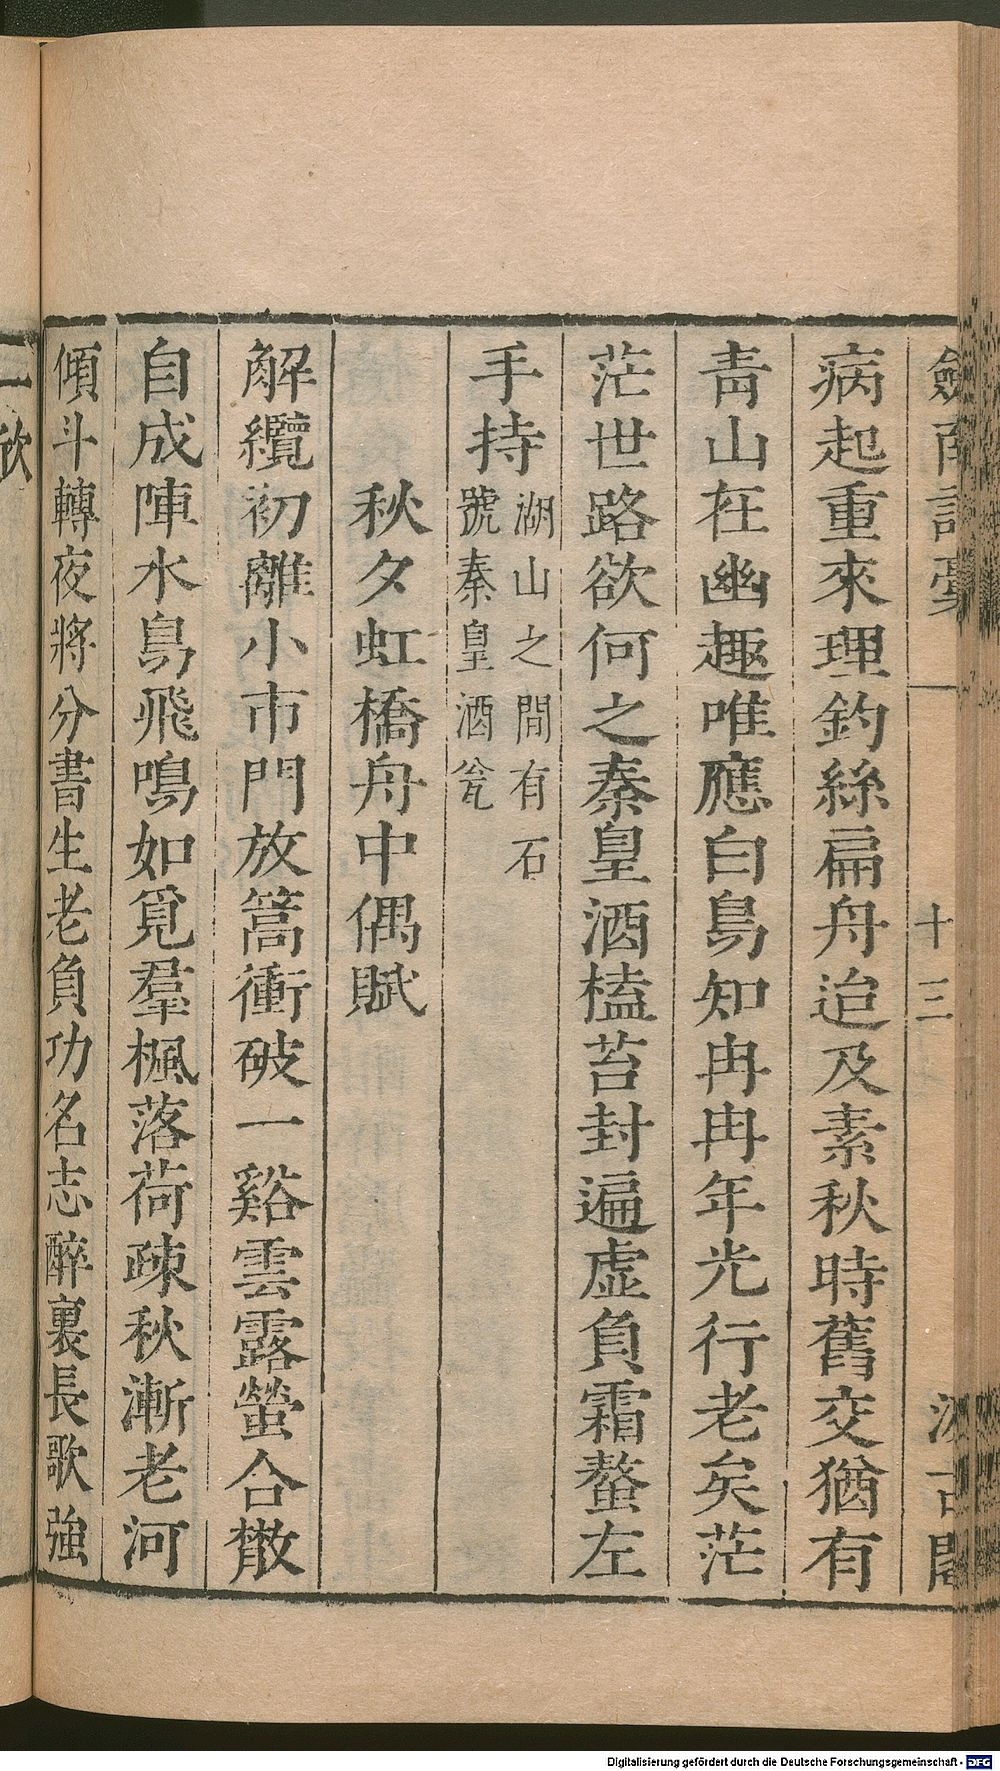 劔南詩稾 十三 汲古閣
病起重來理釣絲扁舟迨及素秋時舊交猶有
靑山在幽趣唯應白鳥知冉冉年光行老矣茫
茫世路欲何之秦皇酒榼苔封遍虛負霜螯左
手持湖山之間有石
號秦皇酒瓮
秋夕虹橋舟中偶賦
解纜初離小市門放篙衝破一谿雲露螢合散
自成陣水鳥飛鳴如覓羣楓落荷疎秋漸老河
傾斗轉夜將分書生老負功名志醉裏長歌強
一欣
Digitalisierung gefördert durch die Deutsche Forschungsgemeinschaft - DFG